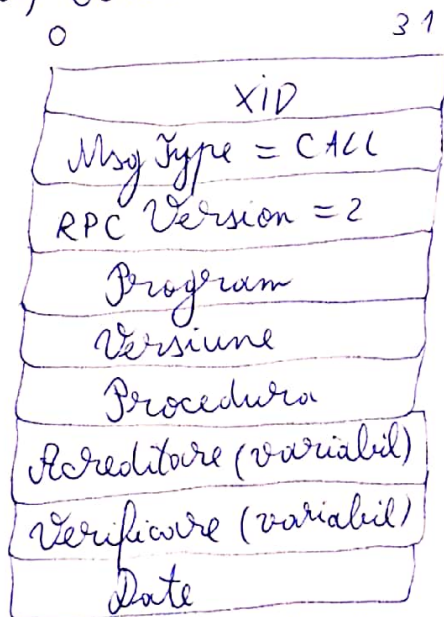 0 31
XID
Msg Type = CALL
RPC Version = 2
Program
Versiune
Procedura
Acreditare (variabil)
Verificare (variabil)
Date